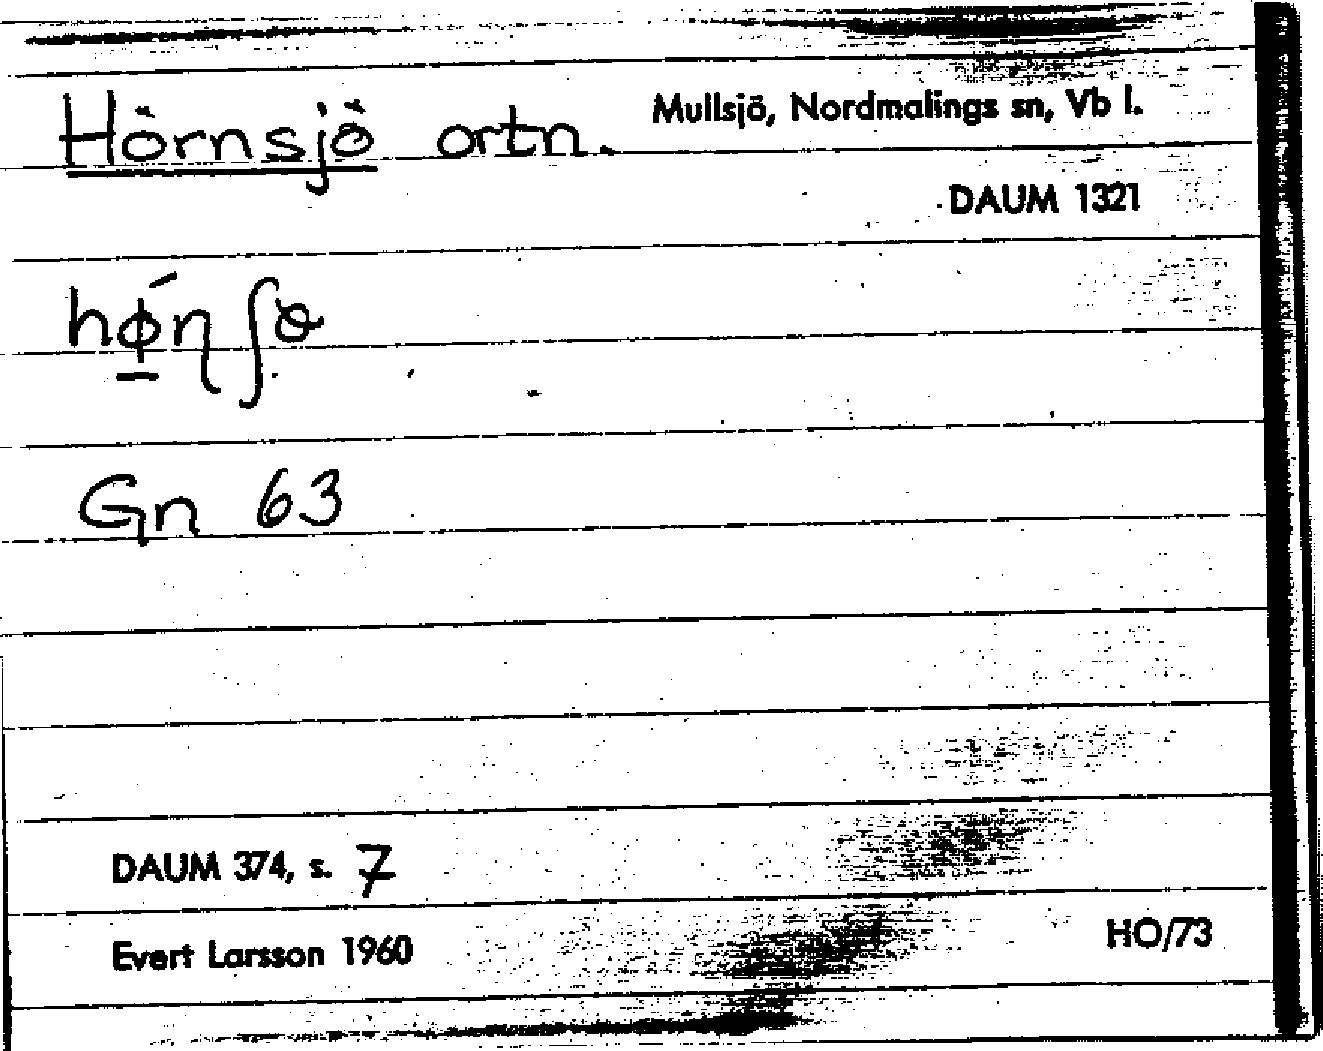 Hörnsjö ortn. Mullsjö, Nordmalings sn, Vb l.
DAUM 1321
hǿ̱ɳʃɵ
Gn 63
DAUM 374, s. 7
Evert Larsson 1960 HO/73